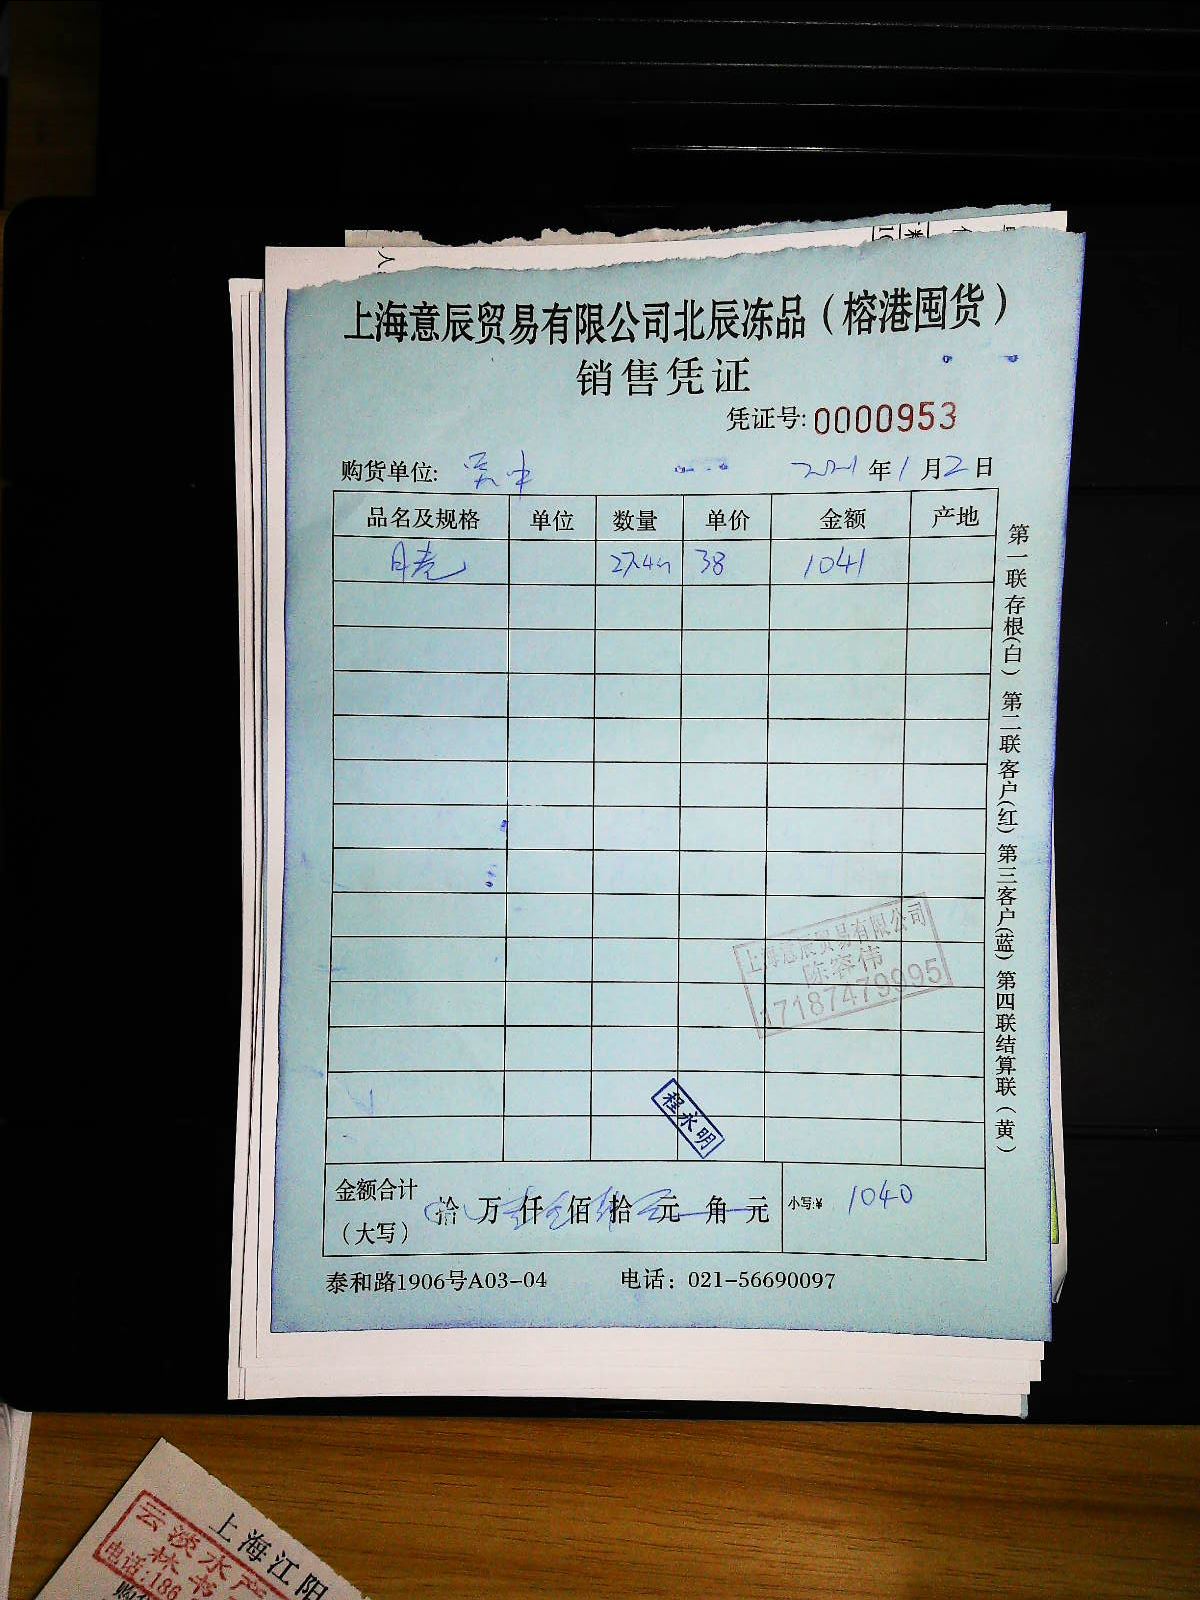 上海意辰贸易有限公司北辰冻品（榕港囤货）
销售凭证
凭证号:0000953
购货单位: 2021年1月2日
品名及规格 单位 数量 单价 金额 产地
27.4 38 1041
第一联存根(白) 第二联客户(红) 第三客户(蓝) 第四联结算联(黄)
上海意辰贸易有限公司
陈容伟
17187479095
程永明
金额合计
（大写） 拾 万 仟 佰 拾 元 角 元 小写:¥ 1040
泰和路1906号A03-04 电话：021-56690097
上海江阳
云淡水产
林书
电话:186